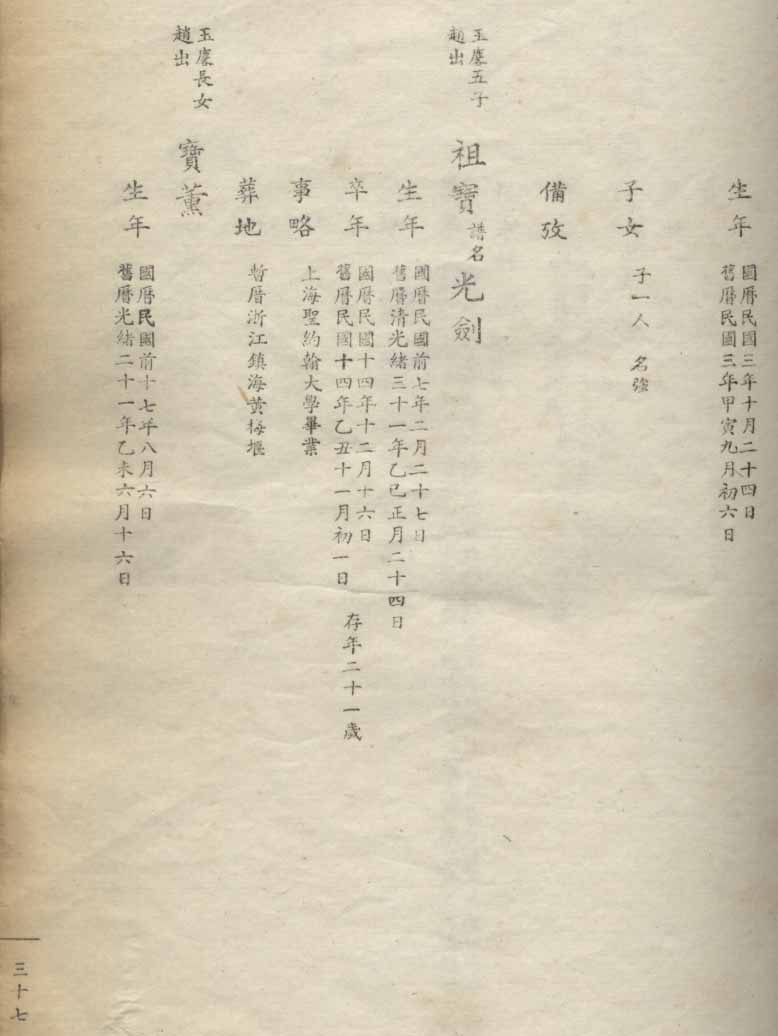 生年
國曆民國三年十月二十四日
舊曆民國三年甲寅九月初六日
子女
子一人 名強
備攷
玉麐五子
趙出
祖寶 譜名 光劍
生年
國曆民國前七年二月二十七日
舊曆清光緒三十一年乙巳正月二十四日
卒年
國曆民國十四年十二月十六日
舊曆民國十四年乙丑十一月初一日
存年二十一歲
事略
上海聖約翰大學畢業
葬地
暫厝浙江鎮海黄梅堰
玉麐長女
趙出
寶薰
生年
國曆民國前十七年八月六日
舊曆光緒二十一年乙未六月十六日
三十七